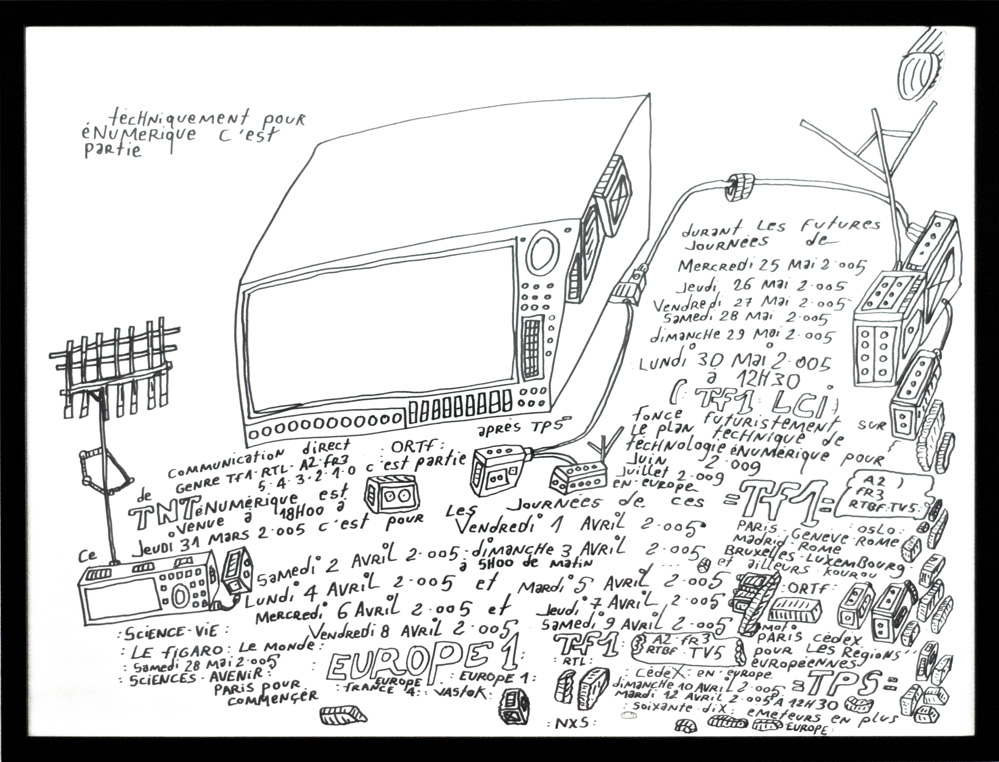 tecHniquement pour
éNuMerique c'est
partie
durant Les futures
JOURNÉES de
Mercredi 25 Mai 2.005
Jeudi 26 Mai 2.005
Vendredi 27 Mai 2.005
Samedi 28 Mai 2.005
dimancHe 29 Mai 2.005
LUNDI 30 Mai 2.005
à 12H30
(: TF1 LCI)
fonce futuristement sur
Le plan tecHnique de
tecHnologie éNumérique pour
Juin 2.009
Juillet 2.009
en europe
après TPS
communication direct ORTF:
GENRE TFA-RTL-A2-FR3
5.4.3.2.1.0 c'est partie
de TNT éNumérique est
venue à 18H00 à
Ce Jeudi 31 MARS 2.005 c'est pour Les Journées de ces
Vendredi 1 Avril 2.005
Samedi 2 Avril 2.005: dimancHe 3 Avril 2.005
à 5H00 de Matin
LUNDI 4 Avril 2.005 et Mardi 5 Avril 2.005
Mercredi 6 Avril 2.005 et Jeudi 7 Avril 2.005
Vendredi 8 Avril 2.005 Samedi 9 Avril 2.005
=TF1=
A2)
FR3
RTBF TV5
PARIS: GENEVE ROME OSLO:
Madrid ROME
Bruxelles-Luxembourg
et ailleurs kourou
:ORTF:
PARIS cédex
pour Les Régions
européennes
:SCIENCE-ViE:
: LE figARO: Le Monde:
: Samedi 28 Mai 2.005
: SCIENCES-AVENIR:
PARIS pour
COMMENÇER
EUROPE 1:
EUROPE EUROPE 1:
fRANCE 4:: VASTOK:
TF1:
A2-FR3
RTBF TV5
:RTL:
CÉDEX: en europe
dimancHe 10 Avril 2.005
Mardi 12 Avril 2.005 A 12H30
: soixante dix: émeteurs en plus
EUROPE:
=TPS=
: NXS: